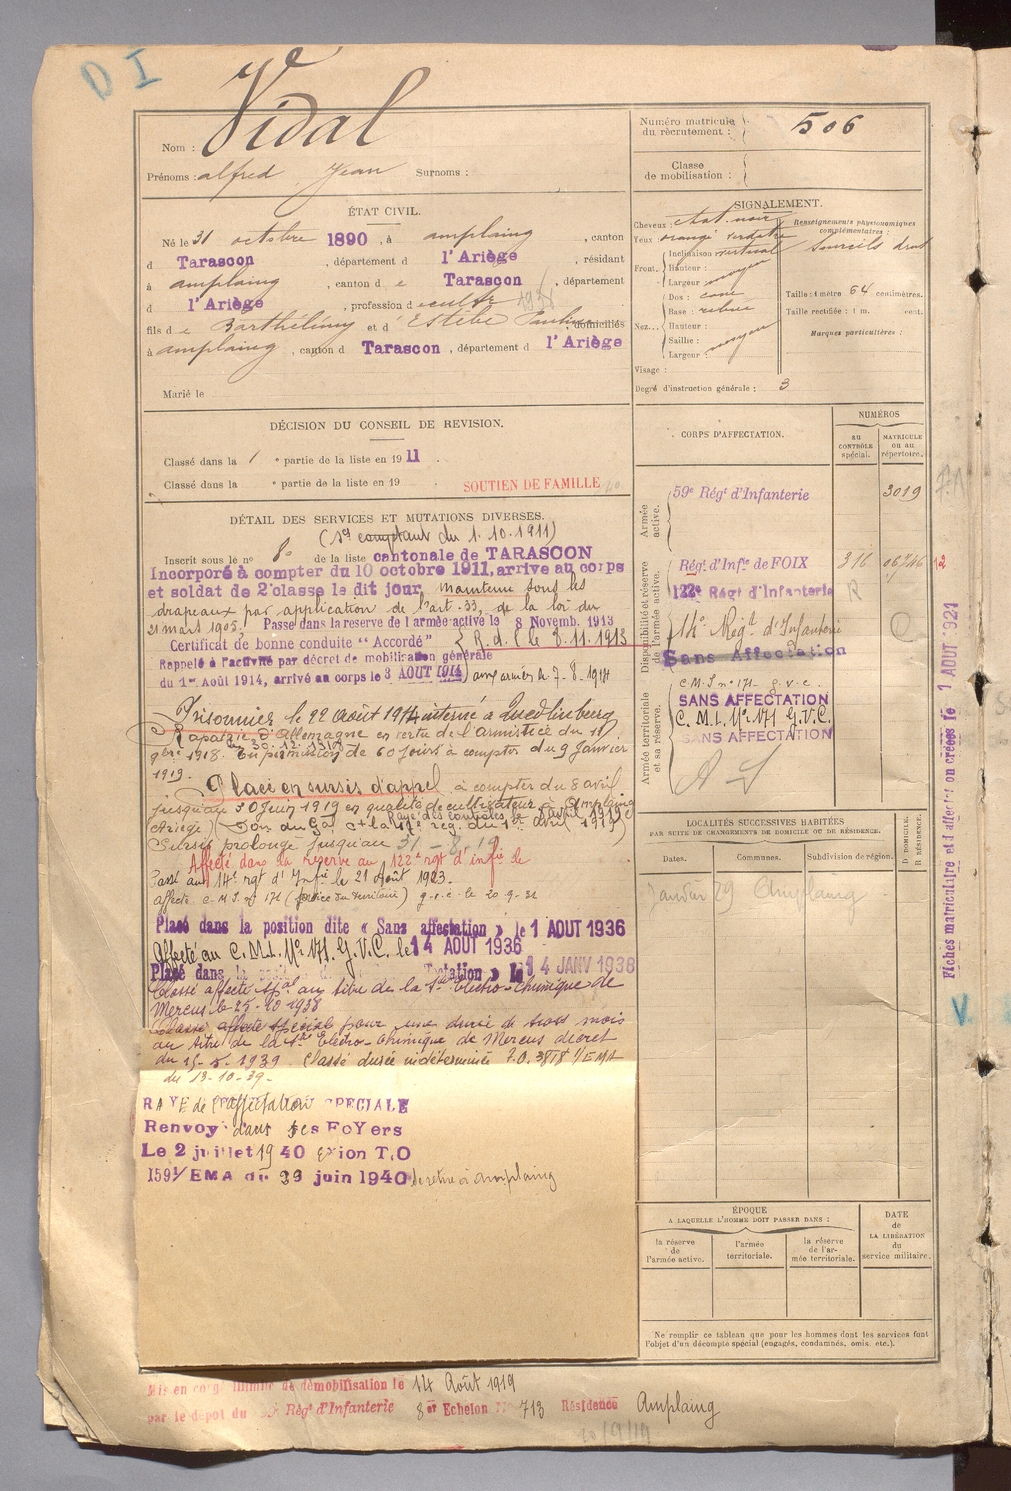 D I
Nom : Vidal
Prénoms : alfred Jean Surnoms :
ÉTAT CIVIL.
Né le 31 octobre 1890, à amplaing, canton
d Tarascon, département d l'Ariège, résidant
à amplaing, canton d e Tarascon, département
d l'Ariège, profession d
fils d e Barthélémy et d' Estèbe domiciliés
à amplaing, canton d Tarascon, département d l'Ariège
Marié le
DÉCISION DU CONSEIL DE REVISION.
Classé dans la 1 e partie de la liste en 1911.
Classé dans la e partie de la liste en 19
SOUTIEN DE FAMILLE
DÉTAIL DES SERVICES ET MUTATIONS DIVERSES.
(Sce comptant du 1.10.1911)
Inscrit sous le n° 8 de la liste cantonale de TARASCON
Incorporé à compter du 10 octobre 1911, arrive au corps
et soldat de 2e classe le dit jour maintenu sous les
drapeaux par application de l'art. 33, de la loi du
21 mars 1905. Passé dans la reserve de l'armée active le 8 Novemb. 1913
Certificat de bonne conduite "Accordé" R. d. C le 8.11.1913
Rappelé à l'activité par décret de mobilisation générale
du 1er Août 1914, arrivé au corps le 3 AOUT 1914 aux armées le 7-8-1914
Prisonnier le 22 Août 1914 interné à Quedlinburg
Rapatrié d'Allemagne en vertu de l'armistice du 11
9bre 1918. le 30.12.1918 En permission de 60 jours à compter du 9 Janvier
1919.
Placé en sursis d'appel à compter du 8 avril
jusqu'au 30 Juin 1919 en qualité de cultivateur à Amplaing
(Ariège) Rayé des contrôles le 8 avril 1919
Sursis prolongé jusqu'au 31-8-19
Affecté dans la réserve au 122e rgt d'infie le
Passé au 14e rgt d'Infie le 21 Août 1923.
affecté C.M.I. n° 171 (service du territoire) g.v.c. le 20.9.31
Placé dans la position dite « Sans affectation » le 1 AOUT 1936
Affecté au C.M.I. N° 171. G.V.C. le 14 AOUT 1936
Placé dans la 14 JANV 1938
Classé affecté spal au titre de la Sté Electro-Chimique de
Mercus le 25-10-1938
Classé affecté spécial pour une durée de trois mois
au titre de la Sté Electro-Chimique de Mercus décret
du 1939 Classé durée indéterminée
du 13-10-39.
RAYE de l'affectation SPECIALE
Renvoyé dans ses FoYers
Le 2 juillet 1940 exion T.O
1591/EMA du juin 1940 se retire à amplaing
Mis en congé illimité de démobilisation le 14 Août 1919
par le dépôt du Régt d'Infanterie 8er Echelon N° 713 Résidence Amplaing
20/9/19
Numéro matricule du recrutement : 506
Classe de mobilisation :
SIGNALEMENT.
Cheveux chat. noir
Yeux orangé verdâtre
Front. Inclinaison vertical
Hauteur :
Largeur moyen
Nez... Dos : cave
Base : relevée
Hauteur :
Saillie :
Largeur : moyen
Visage :
Renseignements physionomiques complémentaires :
sourcils droits
Taille : 1 mètre 64 centimètres.
Taille rectifiée : 1 m. cent.
Marques particulières :
Degré d'instruction générale : 3
CORPS D'AFFECTATION.
NUMÉROS
AU CONTRÔLE spécial.
MATRICULE OU AU répertoire.
Armée active.
59e Régt d'Infanterie 3019
Disponibilité et réserve de l'armée active.
Régt d'Infie de FOIX 316
122e Régt d'Infanterie R
14e Regt d'Infanterie
Sans Affectation
Armée territoriale et sa réserve.
C.M.I n° 171- g.v.c.
SANS AFFECTATION
C.M.I. N° 171 G.V.C.
SANS AFFECTATION
A S
LOCALITÉS SUCCESSIVES HABITÉES
PAR SUITE DE CHANGEMENTS DE DOMICILE OU DE RÉSIDENCE.
Dates. Communes. Subdivision de région. D. DOMICILE. R. RÉSIDENCE.
Janvier 29 Amplaing
ÉPOQUE
A LAQUELLE L'HOMME DOIT PASSER DANS :
la réserve de l'armée active.
l'armée territoriale.
la réserve de l'armée territoriale.
DATE de LA LIBÉRATION du service militaire.
Ne remplir ce tableau que pour les hommes dont les services font
l'objet d'un décompte spécial (engagés, condamnés, omis, etc.).
Fiches matriculaire et d'affectation créées le 1 AOUT 1921
V.